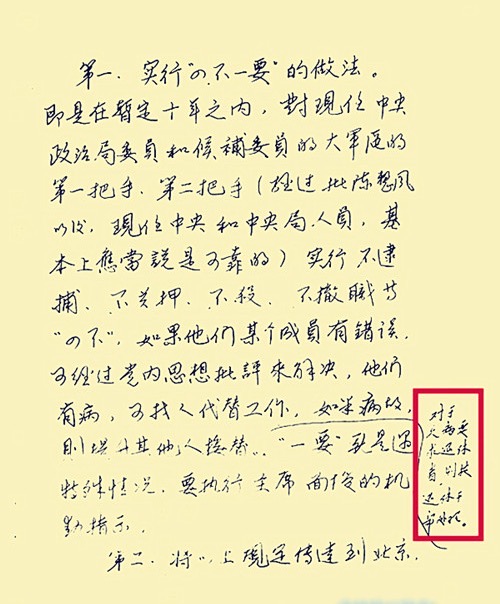 第一．实行“四不一要”的做法。
即是在暫定十年之内，對現任中央
政治局委員和候補委員的大軍區的
第一把手、第二把手（經过批陈整风
以后，現任中央和中央局人員，基
本上應當說是可靠的）实行不逮
捕、不关押、不殺、不撤職等
“四不”，如果他们某个成員有錯误，
可经过党内思想批評來解决，他们
有病，可找人代替工作，如果病故，
則提升其他人接替。“一要”就是遇
特殊情况，要执行主席面授的机
動指示。
第二．將以上規定传達到北京
对于
病要
求退休
者，則按
退休干
部处理。